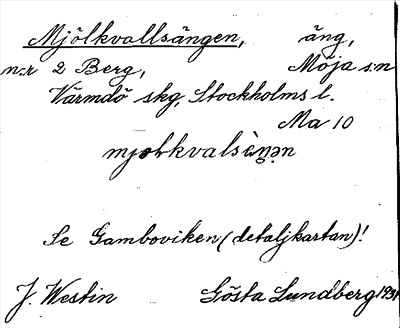 Mjölkvallsängen, äng,
n:r 2 Berg, Möja s:n
Värmdö skg, Stockholms l.
Ma 10
Se Gamboviken (detaljkartan)!
J. Westin Gösta Lundberg 1931